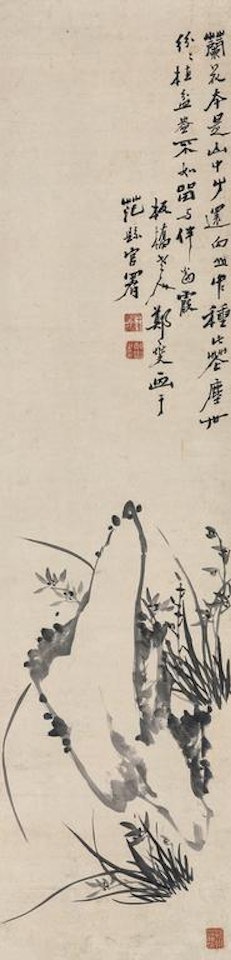 蘭花本是山中艸還向山中種此花塵世
紛〻植盆盎不如留与伴烟霞
板橋老人鄭燮画于
范縣官署